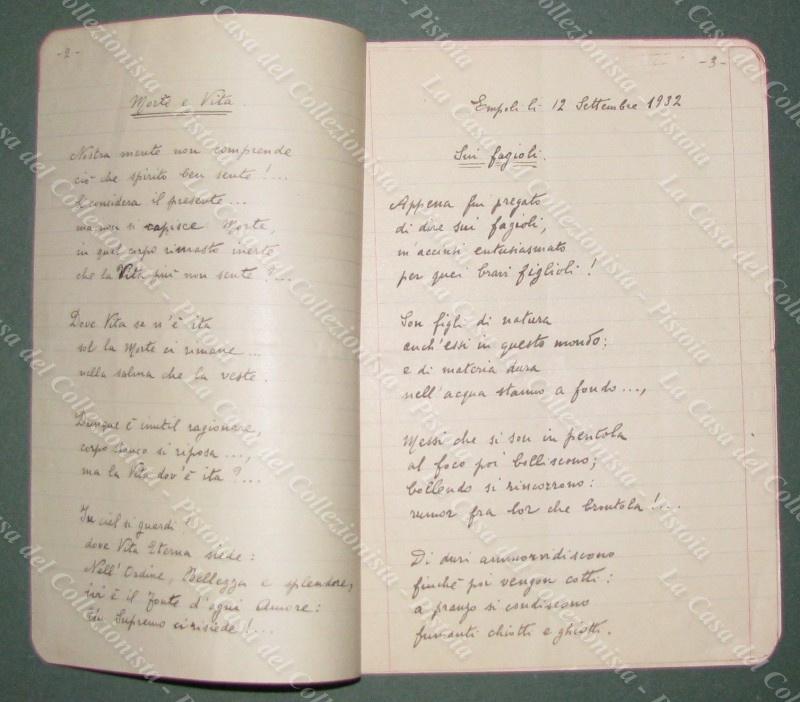 -2-
Morte e Vita.
Nostra mente non comprende
ciò che spirito ben sente!...
E considera il presente...
ma non si capisce Morte,
in quel corpo rimasto inerte
che la Vita più non sente?...
Dove Vita se n'è ita
sol la Morte ci rimane...
nella salma che la veste.
Dunque è inutil ragionare,
corpo stanco si riposa...,
ma la Vita dov'è ita?...
In ciel si guardi!
dove Vita Eterna siede:
Nell'Ordine, Bellezza e splendore,
ivi è il Fonte d'ogni Amore:
Supremo ci risiede!...
-3-
Empoli li 12 Settembre 1932
Sui fagioli.
Appena fui pregato
di dire sui fagioli,
m'accinsi entusiasmato
per quei bravi figlioli!
Son figli di natura
anch'essi in questo mondo;
e di materia dura
nell'acqua stanno a fondo...,
Messi che si son in pentola
al foco poi bolliscono;
bollendo si rincorrono:
rumor fra lor che brontola!...
Di duri ammorvidiscono
finchè poi vengon cotti:
a pranzo si condiscono
fumanti chiotti e ghiotti.
La Casa del Collezionista - Pistoia